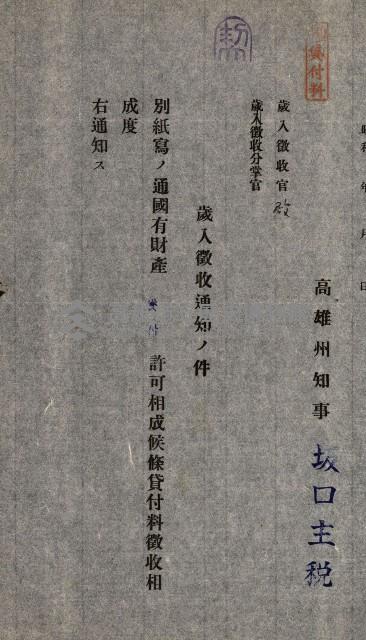 昭和 年 月 日
貸付料
高雄州知事 坂口主税
歲入徵收官 殿
歲入徵收分掌官
歲入徵收通知ノ件
別紙寫ノ通國有財產 貸付 許可相成候條貸付料徵收相
成度
右通知ス